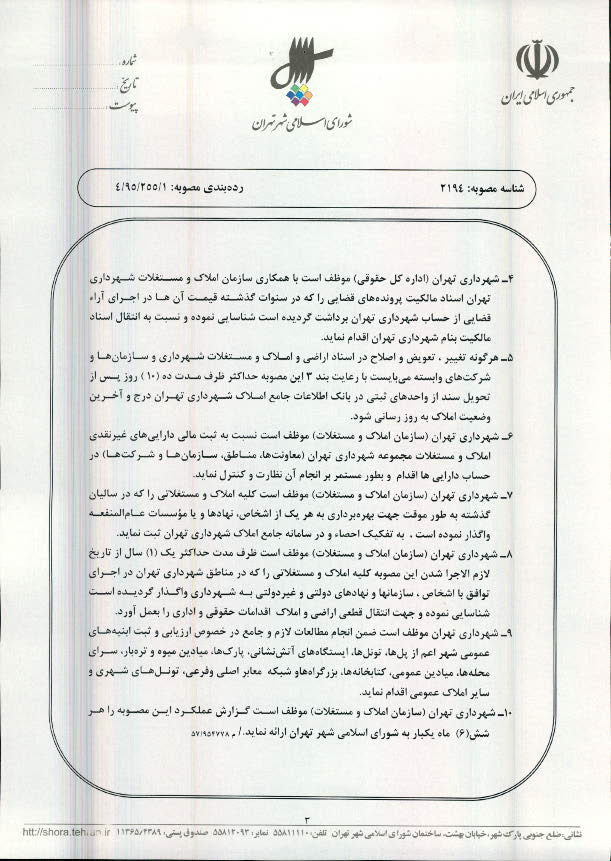 جمهوری اسلامی ایران
شورای اسلامی شهر تهران
شماره:
تاریخ:
پیوست:
شناسه مصوبه: ۲۱۹٤
رده‌بندی مصوبه: ٤/۹٥/۲٥٥/۱
۴ـ شهرداری تهران (اداره کل حقوقی) موظف است با همکاری سازمان املاک و مستغلات شهرداری
تهران اسناد مالکیت پرونده‌های قضایی را که در سنوات گذشته قیمت آن ها در اجرای آراء
قضایی از حساب شهرداری تهران برداشت گردیده است شناسایی نموده و نسبت به انتقال اسناد
مالکیت بنام شهرداری تهران اقدام نماید.
۵ـ هرگونه تغییر ، تعویض و اصلاح در اسناد اراضی و املاک و مستغلات شهرداری و سازمان‌ها و
شرکت‌های وابسته می‌بایست با رعایت بند ۳ این مصوبه حداکثر ظرف مدت ده (۱۰) روز پس از
تحویل سند از واحدهای ثبتی در بانک اطلاعات جامع املاک شهرداری تهران درج و آخرین
وضعیت املاک به روز رسانی شود.
۶ـ شهرداری تهران (سازمان املاک و مستغلات) موظف است نسبت به ثبت مالی دارایی‌های غیرنقدی
املاک و مستغلات مجموعه شهرداری تهران (معاونت‌ها، مناطق، سازمان‌ها و شرکت‌ها) در
حساب دارایی ها اقدام و بطور مستمر بر انجام آن نظارت و کنترل نماید.
۷ـ شهرداری تهران (سازمان املاک و مستغلات) موظف است کلیه املاک و مستغلاتی را که در سالیان
گذشته به طور موقت جهت بهره‌برداری به هر یک از اشخاص، نهادها و یا مؤسسات عام‌المنفعه
واگذار نموده است ، به تفکیک احصاء و در سامانه جامع املاک شهرداری تهران ثبت نماید.
۸ـ شهرداری تهران (سازمان املاک و مستغلات) موظف است ظرف مدت حداکثر یک (۱) سال از تاریخ
لازم الاجرا شدن این مصوبه کلیه املاک و مستغلاتی را که در مناطق شهرداری تهران در اجرای
توافق با اشخاص ، سازمانها و نهادهای دولتی و غیردولتی به شهرداری واگذار گردیده است
شناسایی نموده و جهت انتقال قطعی اراضی و املاک اقدامات حقوقی و اداری را بعمل آورد.
۹ـ شهرداری تهران موظف است ضمن انجام مطالعات لازم و جامع در خصوص ارزیابی و ثبت ابنیه‌های
عمومی شهر اعم از پل‌ها، تونل‌ها، ایستگاه‌های آتش‌نشانی، پارک‌ها، میادین میوه و تره‌بار، سرای
محله‌ها، میادین عمومی، کتابخانه‌ها، بزرگراه‌هاو شبکه معابر اصلی وفرعی، تونل‌های شهری و
سایر املاک عمومی اقدام نماید.
۱۰ـ شهرداری تهران (سازمان املاک و مستغلات) موظف است گزارش عملکرد این مصوبه را هر
شش(۶) ماه یکبار به شورای اسلامی شهر تهران ارائه نماید./ م ۵۷/۹۵۴۷۷۸
۳
نشانی:ضلع جنوبی پارک شهر، خیابان بهشت، ساختمان شورای اسلامی شهر تهران تلفن: ۵۵۸۱۱۱۱۰ نمابر: ۵۵۸۱۲۰۹۳ صندوق پستی: ۱۱۳۶۵/۴۳۸۹ http://shora.tehran.ir